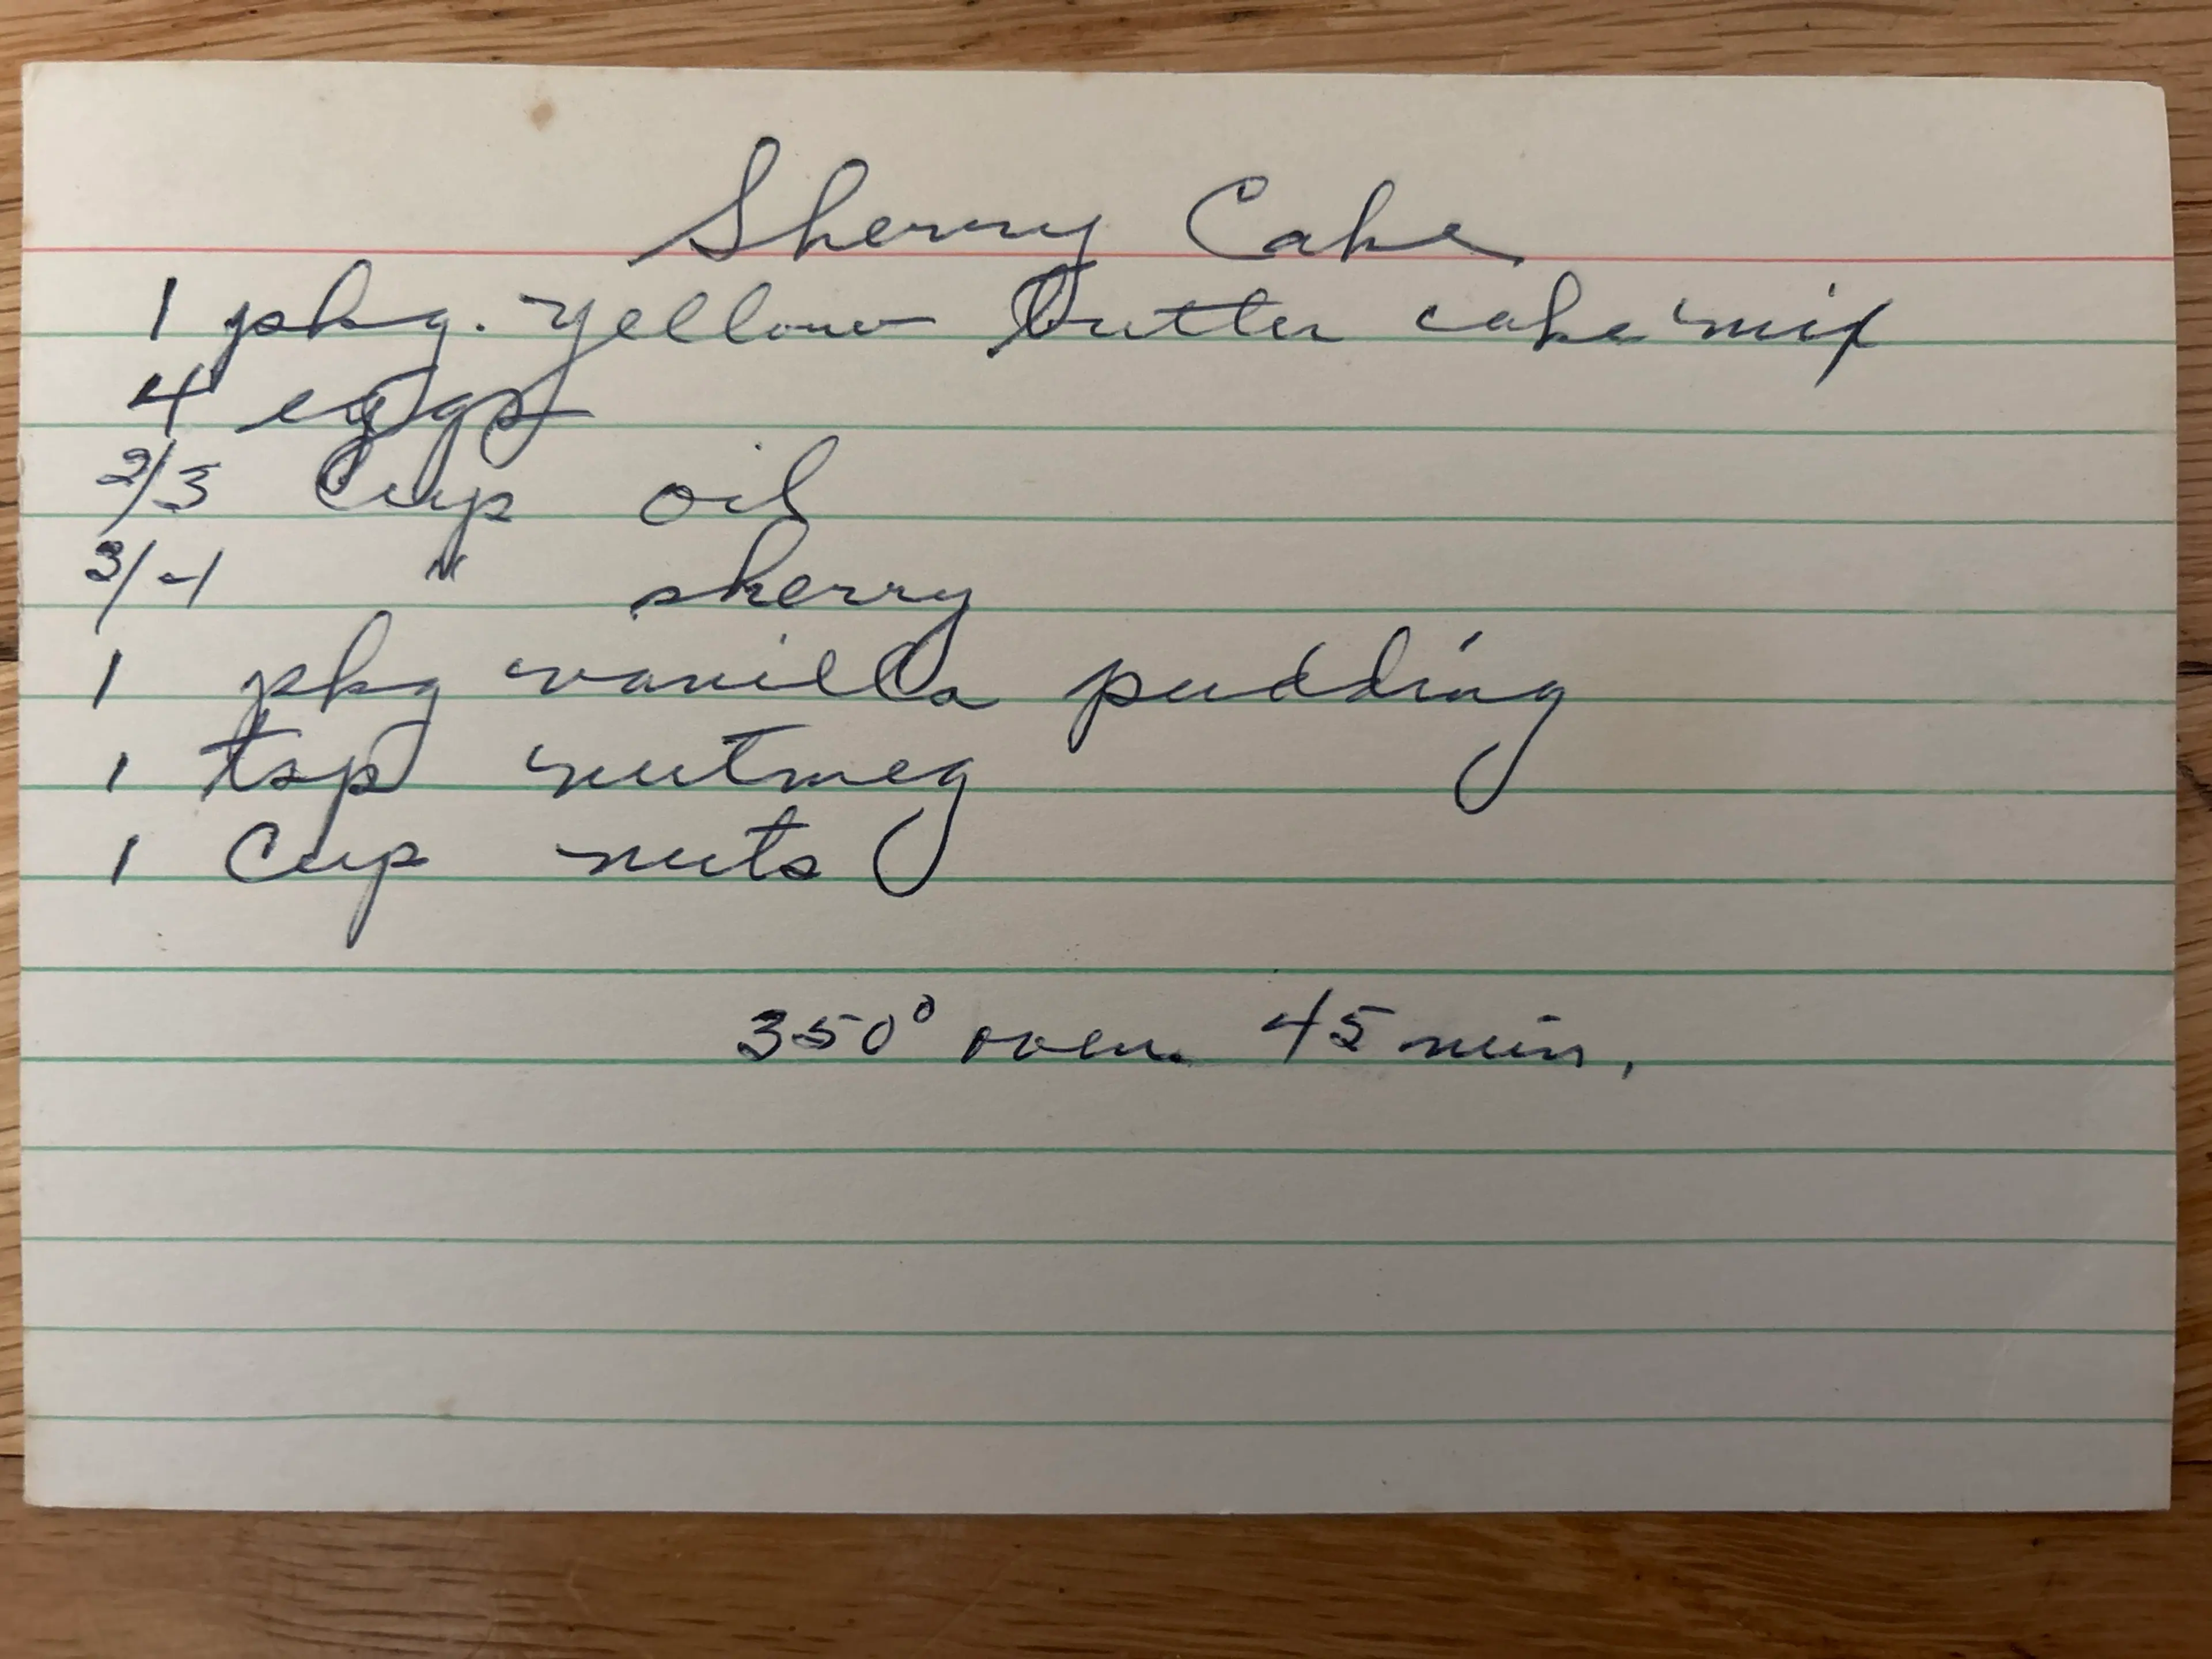 Sherry Cake
1 pkg. yellow butter cake mix
4 eggs
2/3 Cup oil
3/4 " sherry
1 pkg vanilla pudding
1 tsp nutmeg
1 Cup nuts
350° oven 45 min.